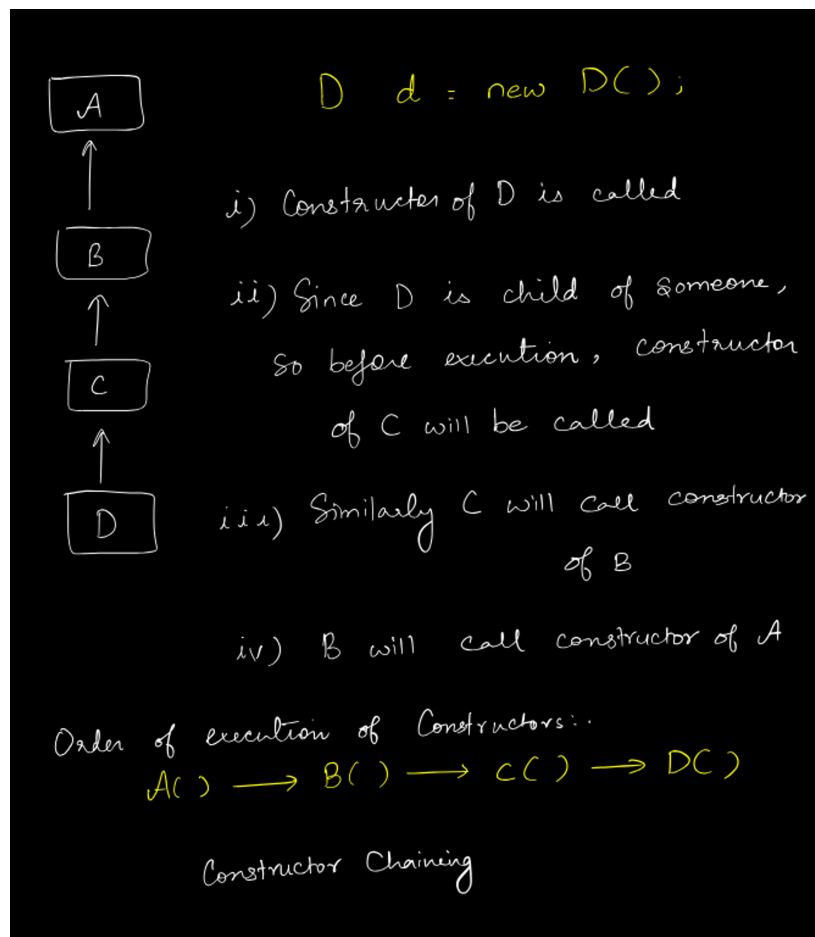 A
D d = new D();
i) Constructor of D is called
B
ii) Since D is child of someone,
so before execution, constructor
C
of C will be called
iii) Similarly C will call constructor
D
of B
iv) B will call constructor of A
Order of execution of Constructors:.
A() → B() → C() → D()
Constructor Chaining